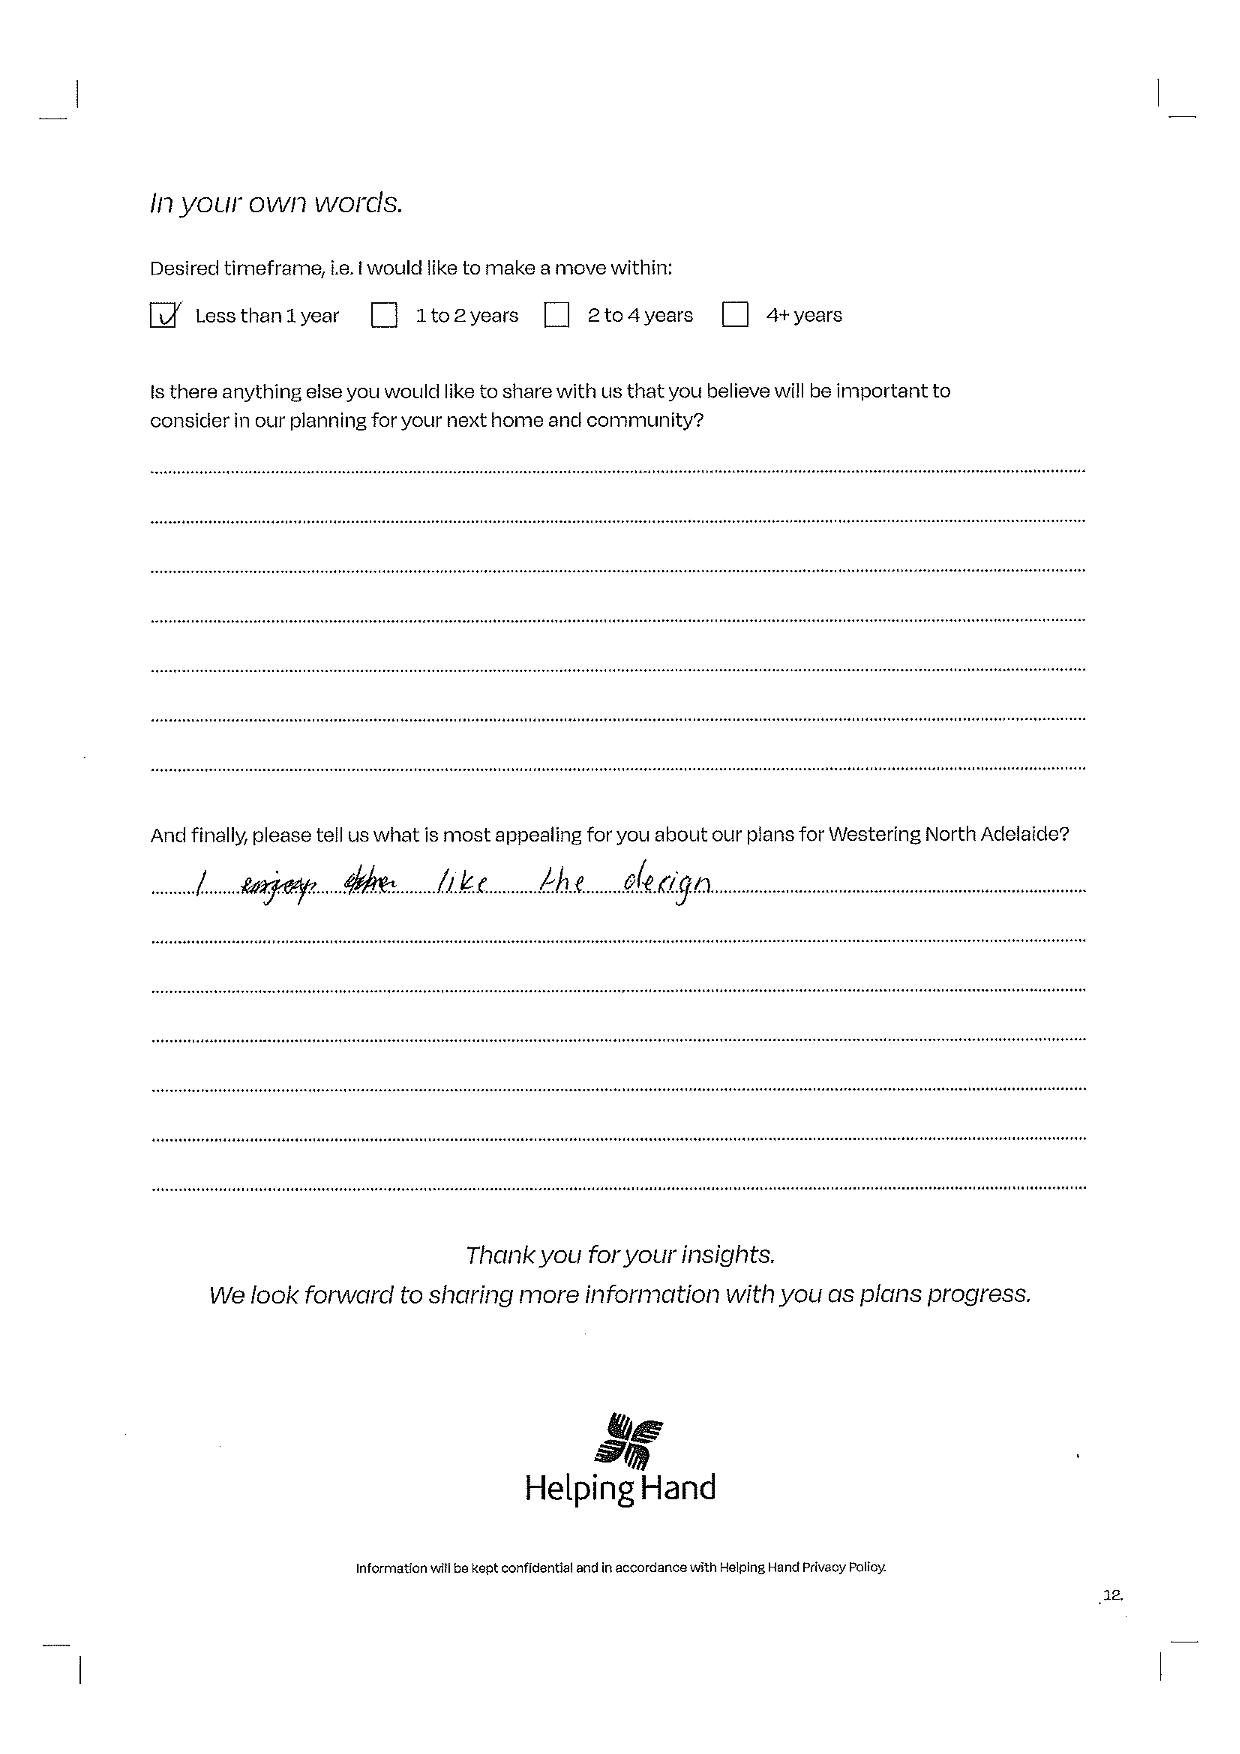 In your own words.
Desired timeframe, i.e. I would like to make a move within:
Less than 1 year 1 to 2 years 2 to 4 years 4+ years
Is there anything else you would like to share with us that you believe will be important to
consider in our planning for your next home and community?
And finally, please tell us what is most appealing for you about our plans for Westering North Adelaide?
I enjoy like the design
Thank you for your insights.
We look forward to sharing more information with you as plans progress.
Helping Hand
Information will be kept confidential and in accordance with Helping Hand Privacy Policy.
12.